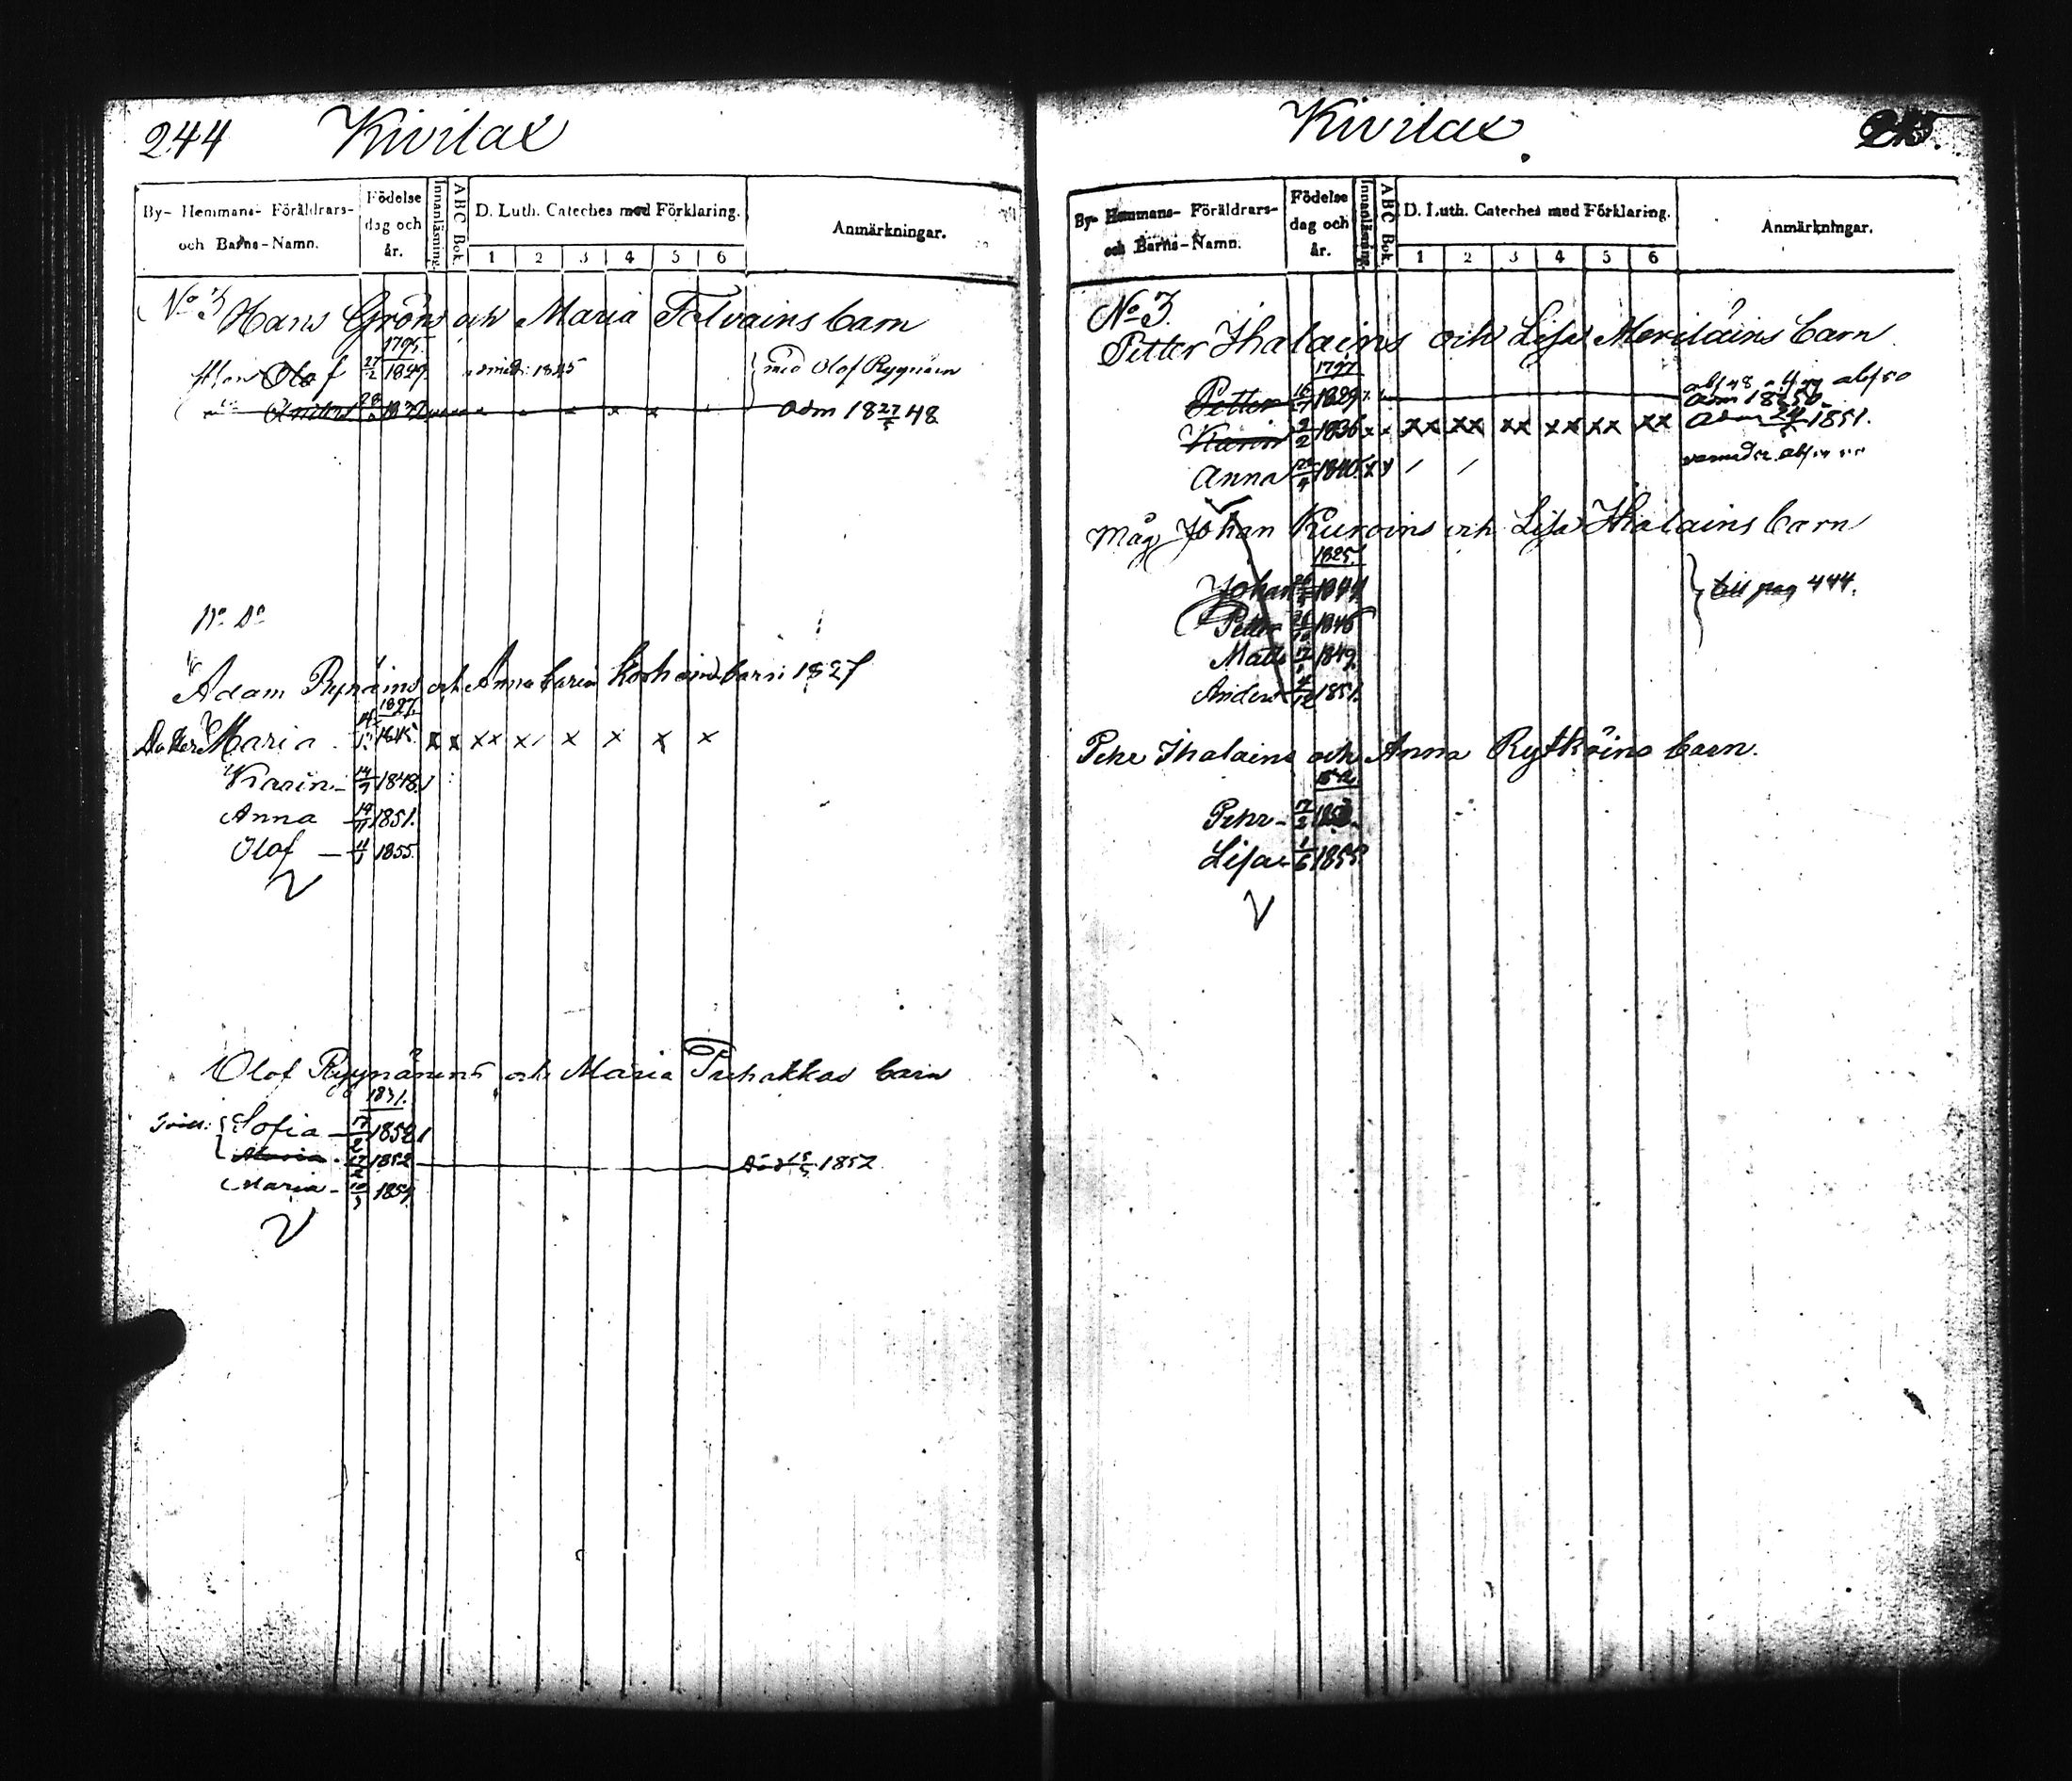 244 Kivilax
By- Hemmans- Föräldrars- och Barns-Namn. Födelse dag och år. Innanläsning. A B C Bok. D. Luth. Cateches med Förklaring. 1 2 3 4 5 6 Anmärkningar.
No 3 Hans Gröns och Maria Tolvains barn
1795.
Olof 27/2 1829. admitt: 1845 med Olof Rygnäen
Anders 28 1832 x x x adm 18 27/5 48
No Do
Adam Rynäins och Anna Carin Korhoins barn 1827
1827.
Dotter Maria 1845. x x xx x x x x x
Karin - 14/7 1848.
Anna - 19/11 1851.
Olof - 4/3 1855.
Olof Ryynäins och Maria Puhakkas barn
1831.
Tvill: Sofia - 17/2 1852
Maria - 17/2 1852 död 15/5 1852
Maria - 10/3 1854
Kivilax 245.
By- Hemmans- Föräldrars- och Barns-Namn. Födelse dag och år. Innanläsning. A B C Bok. D. Luth. Cateches med Förklaring. 1 2 3 4 5 6 Anmärkningar.
No 3.
Petter Ihalains och Lisa Meriläins barn
1797
Petter 1829 abs 48 abs 50
adm 1850
Karin 2/2 1836 x x xx xx xx xx xx xx adm 1851.
Anna 1840. x x
Måg Johan Kuroins och Lisa Ihalains barn
1825.
Johan 1844 till pag 444.
Petter 1846
Matts 1849
Anders 1851.
Pehr Ihalains och Anna Rytköins barn.
Pehr - 17/2
Lisa - 1/6 1855